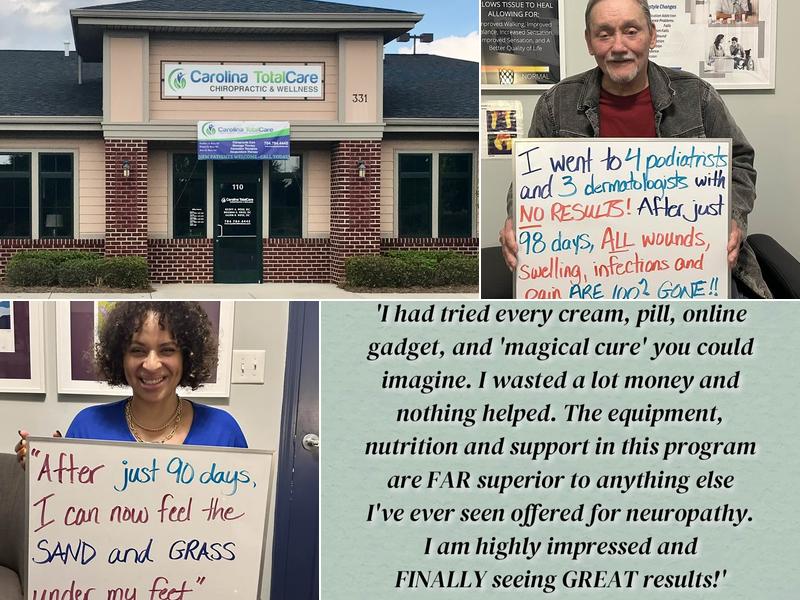 Carolina TotalCare
CHIROPRACTIC & WELLNESS
331
Carolina TotalCare
NEW PATIENTS WELCOME - CALL TODAY
704.784.4445
110
Carolina TotalCare
704.784.4445
LOWS TISSUE TO HEAL
ALLOWING FOR:
Improved Walking, Improved
lance, Increased Sensation
mproved Sensation, and A
Better Quality of Life
NORMAL
estyle Changes
I went to 4 podiatrists
and 3 dermatologists with
NO RESULTS! After just
98 days, ALL wounds,
swelling, infections and
pain ARE 100% GONE!!
"After just 90 days,
I can now feel the
SAND and GRASS
under my feet"
'I had tried every cream, pill, online
gadget, and 'magical cure' you could
imagine. I wasted a lot money and
nothing helped. The equipment,
nutrition and support in this program
are FAR superior to anything else
I've ever seen offered for neuropathy.
I am highly impressed and
FINALLY seeing GREAT results!'